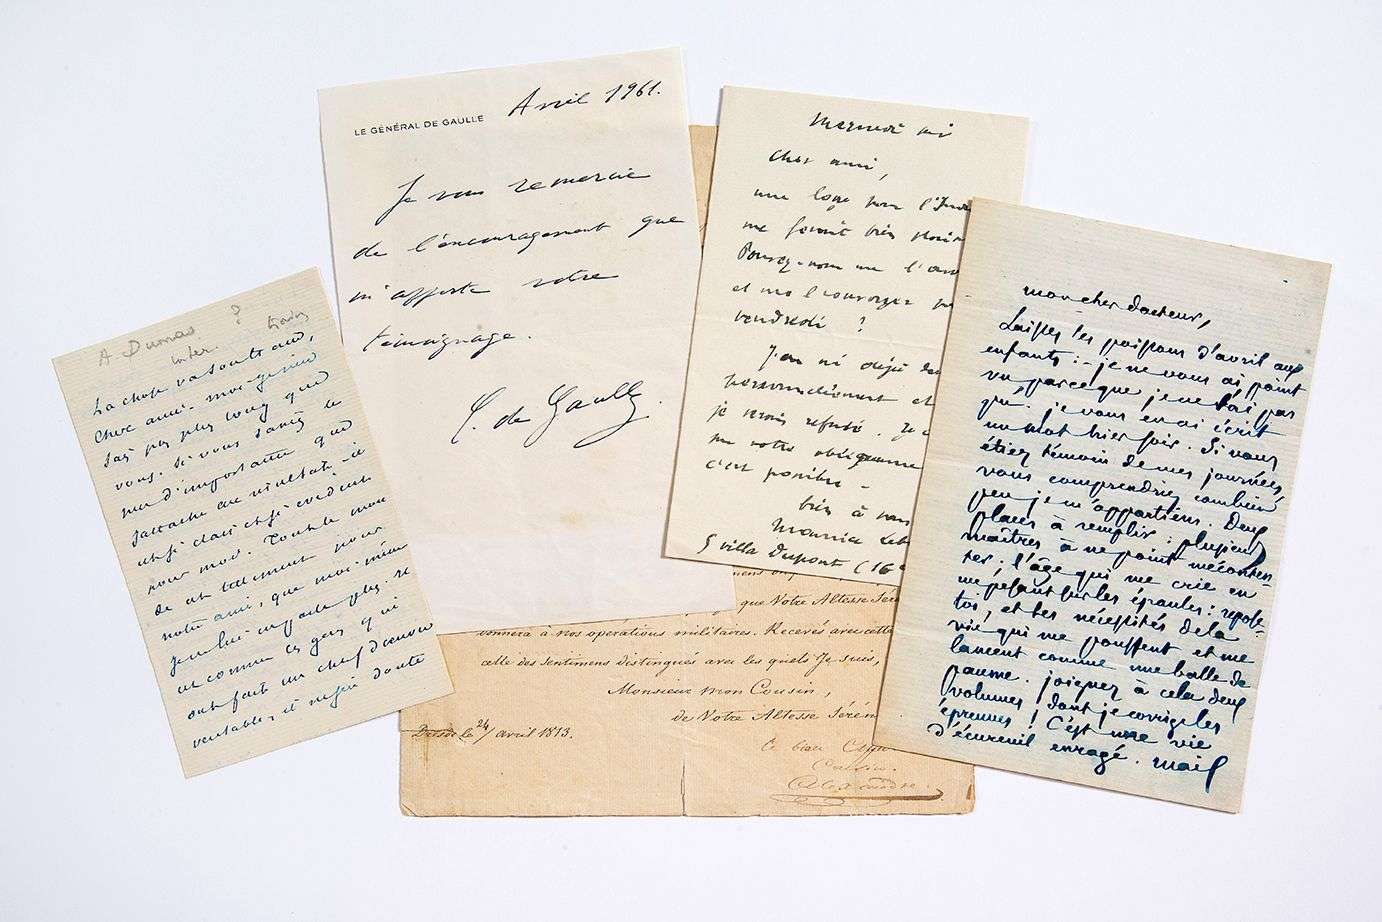 A Dumas ?
inter.
La chose va sans dire,
cher ami. moi je n'en
sais pas plus long que
vous. Si vous saviez le
peu d'importance que
j'attache au résultat
aussi clair aussi évident
pour moi. Tout le mon
de est tellement pour
notre ami, que moi-même
je m'en importe plus. Il
est comme les gens qui
ont fait un chef d'œuvre
véritable, et n'en doute
LE GÉNÉRAL DE GAULLE
Avril 1961.
Je vous remercie
de l'encouragement que
m'apporte votre
témoignage.
C. de Gaulle.
Mercredi
Cher ami,
une loge pour
me ferait bien plaisir
Pouvez-vous me l'avoir
et me l'envoyer
vendredi ?
J'en ai déjà
personnellement et
je serais refusé. Je
me votre obligeance
c'est possible -
bien à vous
Maurice Leb
9 villa Dupont (16e
que Votre Altesse Séré
donnera à nos opérations militaires. Recevés avec cette
celle des sentimens distingués avec les quels Je suis,
Monsieur mon Cousin,
de Votre Altesse Sérén
Dresde le 24/ avril 1813.
Le bien
Cousin
Alexandre.
mon cher docteur,
Laissez les poissons d'avril aux
enfants : - je ne vous ai point
vu parce que je ne l'ai pas
pu. je vous en ai écrit
un mot hier soir. Si vous
étiez témoin de mes journées,
vous comprendriez combien
peu je m'appartiens. Deux
places à remplir : plusieurs
maîtres à ne point mécontent-
ter ; l'âge qui me crie en
me pesant sur les épaules : repose-
toi, et les nécessités de la
vie qui me poussent et me
lancent comme une balle de
paume. joignez à cela deux
volumes ! dont je corrige les
épreuves ! C'est une vie
d'écureuil enragé. mais